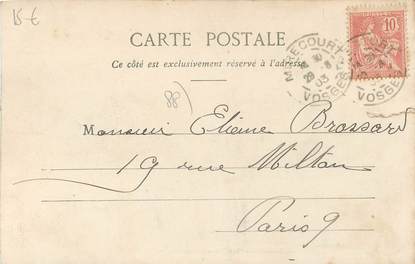 15 €
CARTE POSTALE
Ce côté est exclusivement réservé à l'adresse
10
MIRECOURT
VOSGES
29
03
VOSGES
88
Monsieur Etienne Brossard
19 rue Milton
Paris 9